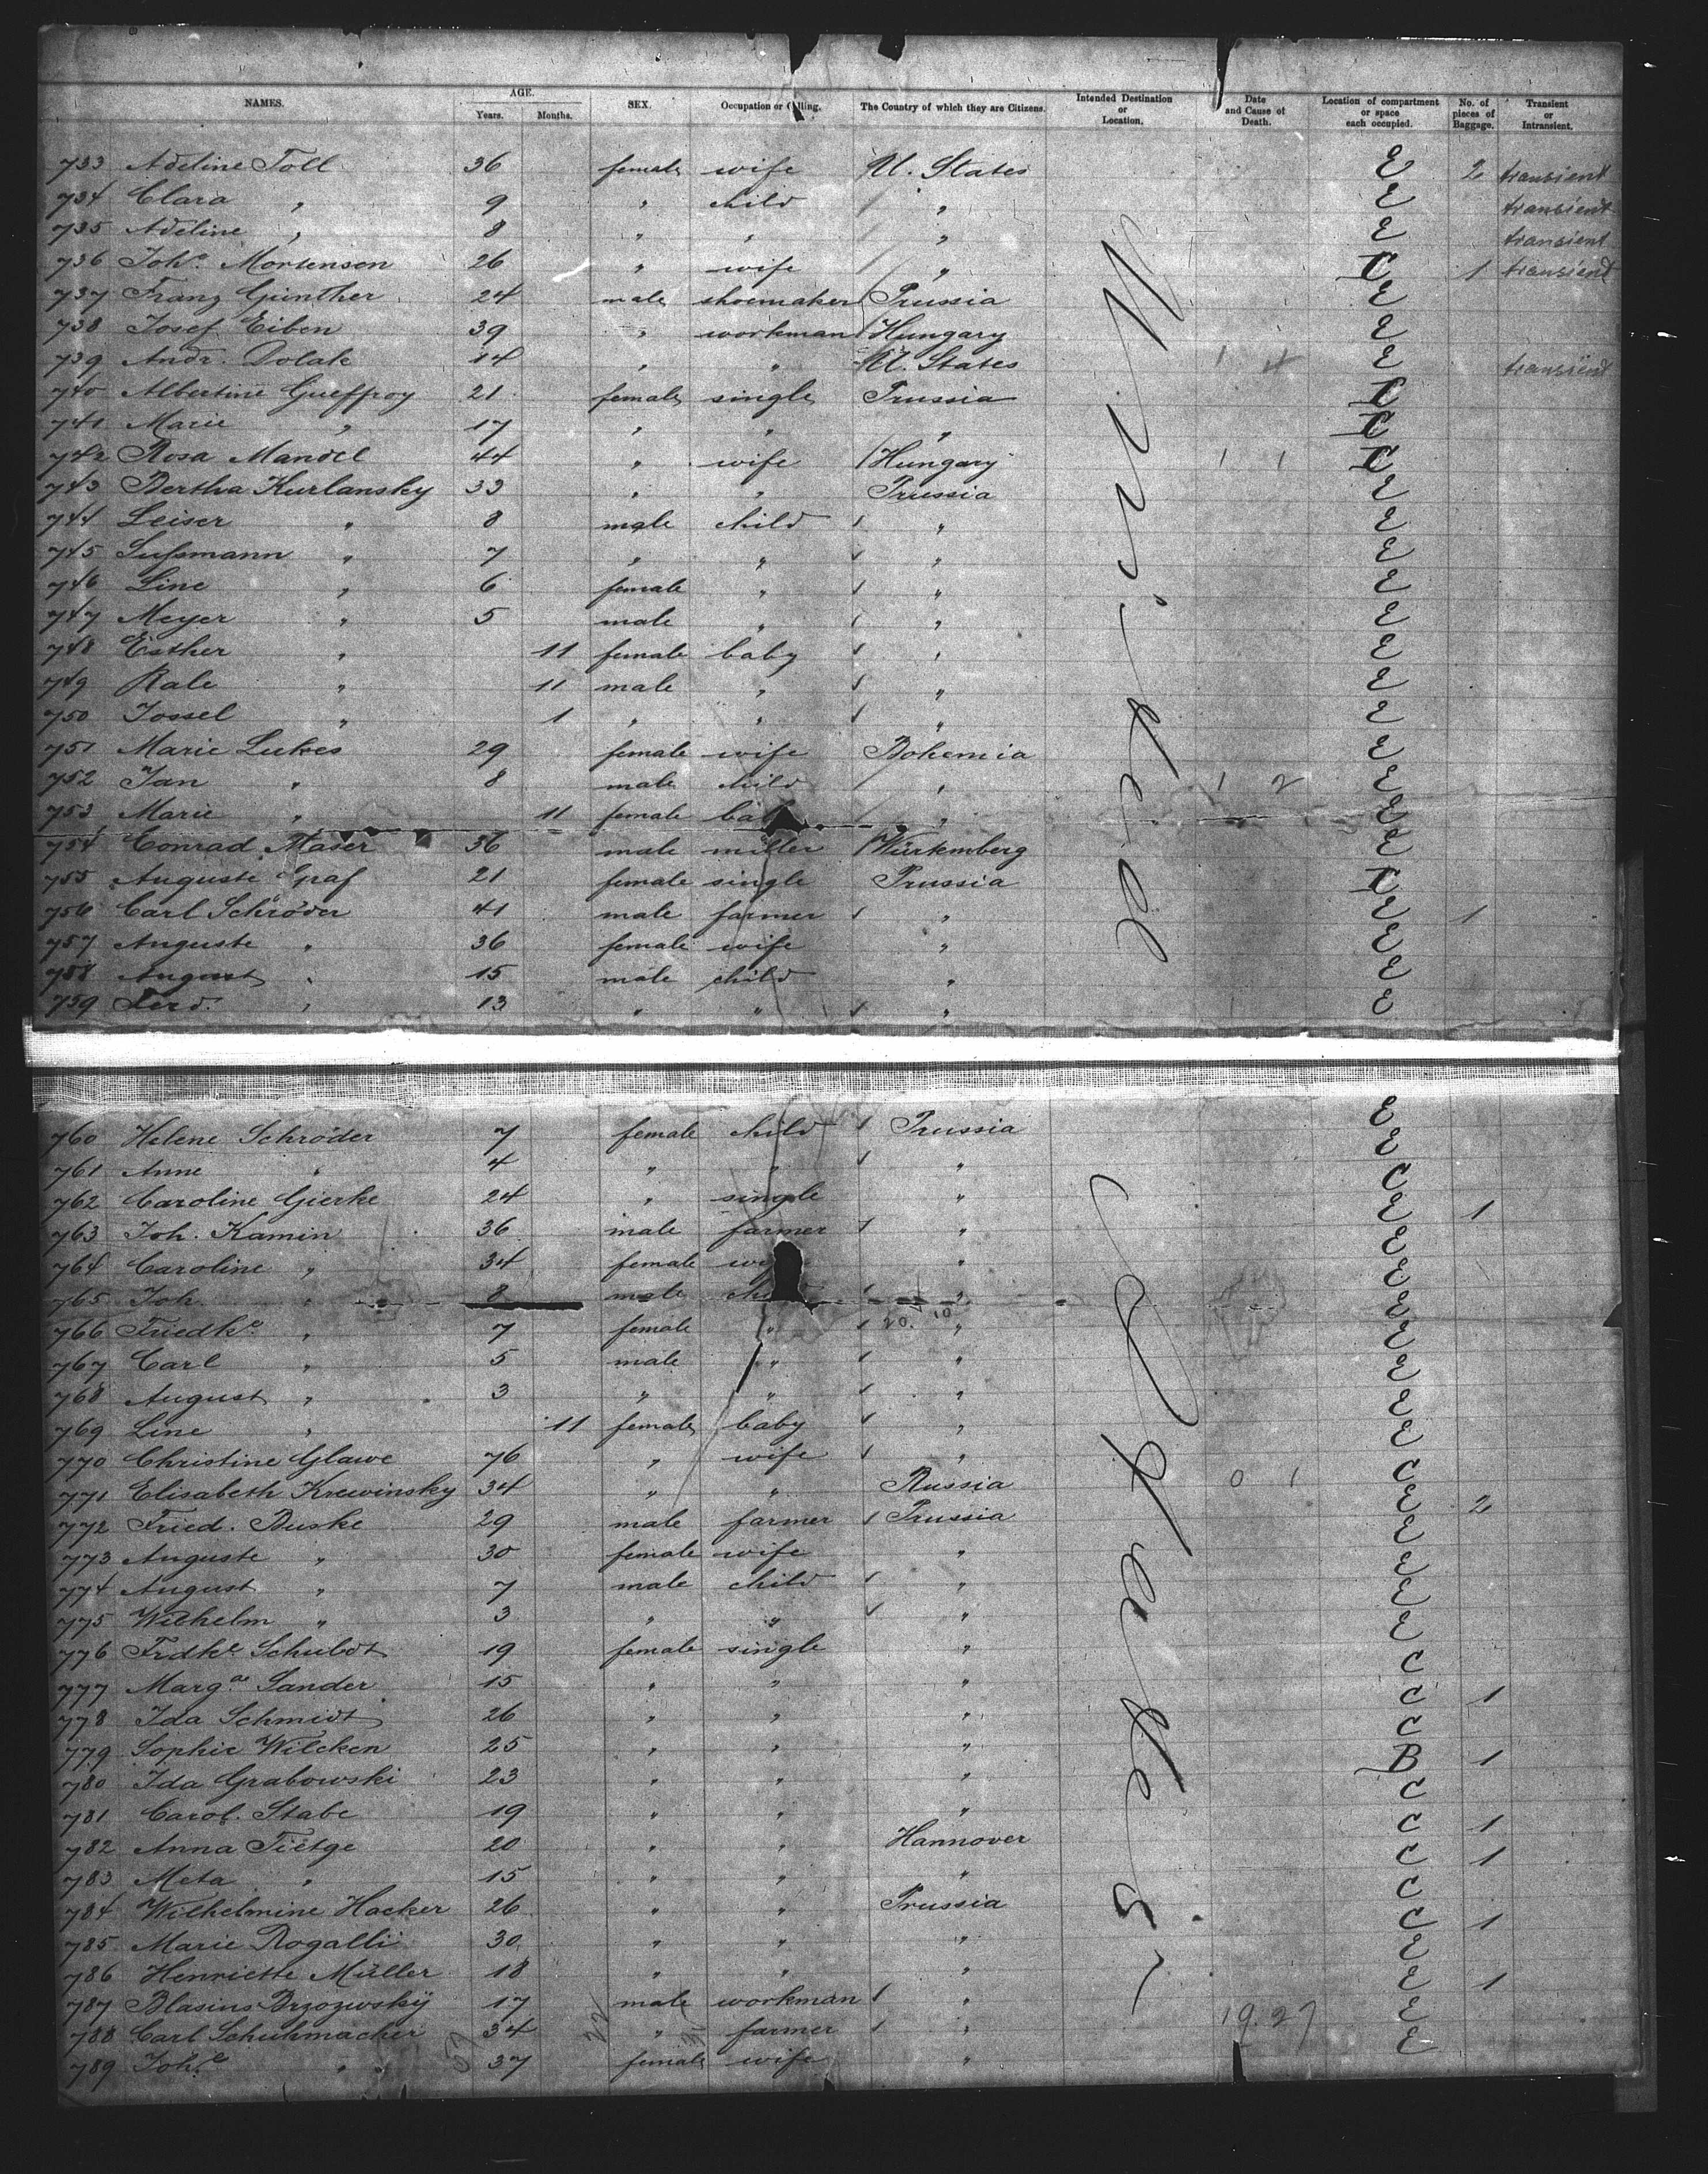 NAMES. AGE. Years. Months. SEX. Occupation or Calling. The Country of which they are Citizens. Intended Destination or Location. Date and Cause of Death. Location of compartment or space each occupied. No. of pieces of Baggage. Transient or Intransient.
733 Adeline Toll 36 female wife U. States E 2 transient
734 Clara " 9 " child " E transient
735 Adeline " 8 " " " E transient
736 Joh.e Mortensen 26 " wife " C 1 transient
737 Franz Günther 24 male shoemaker Prussia E
738 Josef Eiben 39 " workman Hungary E
739 Andr. Dolak 14 " " U. States E transient
740 Albertine Gueffroy 21 female single Prussia C
741 Marie " 17 " " " C
742 Rosa Mandel 44 " wife Hungary 1 1 C
743 Bertha Kurlansky 33 " " Prussia E
744 Leiser " 8 male child " E
745 Sussmann " 7 " " " E
746 Line " 6 female " " E
747 Meyer " 5 male " " E
748 Esther " 11 female baby " E
749 Rale " 11 male " " E
750 Jossel " 1 " " " E
751 Marie Lukes 29 female wife Bohemia E
752 Jan " 8 male child " 1 2 E
753 Marie " 11 female ba " E
754 Conrad Maser 36 male miller Würtemberg E
755 Auguste Graf 21 female single Prussia C
756 Carl Schröder 41 male farmer " E 1
757 Auguste " 36 female wife " E
758 August " 15 male child " E
759 Ferd. " 13 " " " E
760 Helene Schröder 7 female child Prussia E
761 Anne " 4 " " " E
762 Caroline Gierke 24 " single " C
763 Joh. Kamin 36 male farmer " E 1
764 Caroline " 34 female wi " E
765 Joh. " 8 male chi " E
766 Friedk.e " 7 female " " E
767 Carl " 5 male " " E
768 August " 3 " " " E
769 Line " 11 female baby " E
770 Christine Glawe 76 " wife " E
771 Elisabeth Krewinsky 34 " " Russia 0 1 C
772 Fried. Buske 29 male farmer Prussia E 2
773 Auguste " 30 female wife " E
774 August " 7 male child " E
775 Wilhelm " 3 " " " E
776 Frdk.e Schubdt 19 female single " E
777 Marg.ae Sander 15 " " " C
778 Ida Schmidt 26 " " " C 1
779 Sophie Wilcken 25 " " " C
780 Ida Grabowski 23 " " " B 1
781 Carol. Stabe 19 " " " C
782 Anna Tietge 20 " " Hannover C 1
783 Meta " 15 " " " C 1
784 Wilhelmine Hacker 26 " " Prussia C
785 Marie Rogalli 30 " " " C 1
786 Henriette Müller 18 " " " E
787 Blasius Brzozwsky 17 male workman " E 1
788 Carl Schuhmacher 34 " farmer " 19.27 E
789 Joh.e " 37 female wife " E